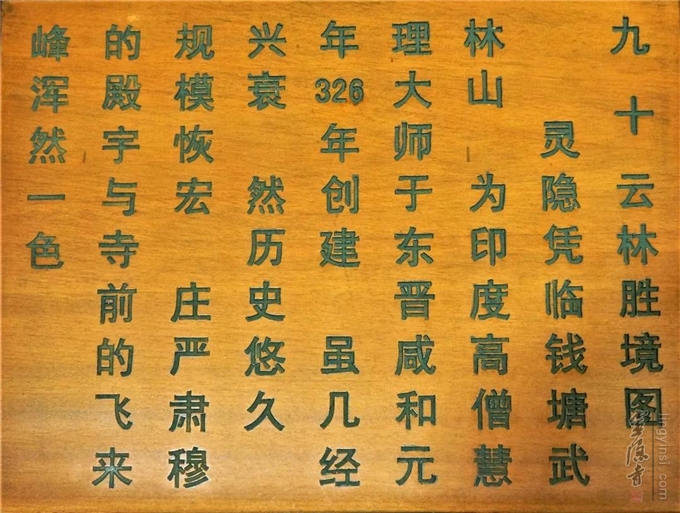 九十云林胜境图
灵隐凭临钱塘武
林山 为印度高僧慧
理大师于东晋咸和元
年326年创建 虽几经
兴衰 然历史悠久
规模恢宏 庄严肃穆
的殿宇与寺前的飞来
峰浑然一色
灵隐寺
lingyinsi.com